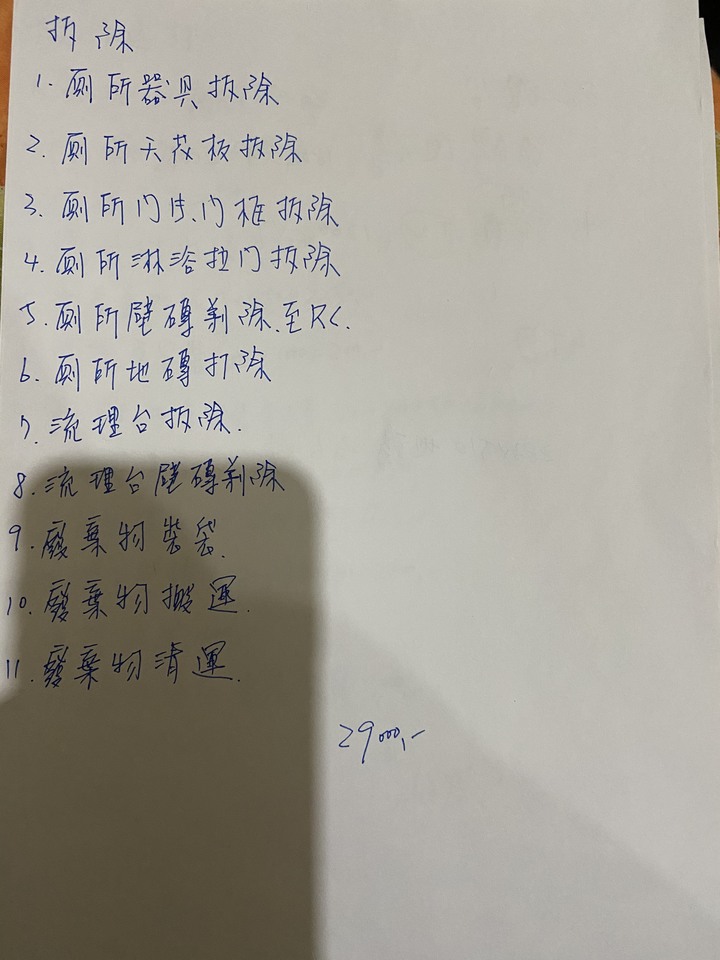 拆除
1. 廁所器具拆除
2. 廁所天花板拆除
3. 廁所门片、门框拆除
4. 廁所淋浴拉门拆除
5. 廁所壁磚剃除.至RC.
6. 廁所地磚打除
7. 流理台拆除.
8. 流理台壁磚剃除
9. 廢棄物裝袋.
10. 廢棄物搬運.
11. 廢棄物清運.
29000,-